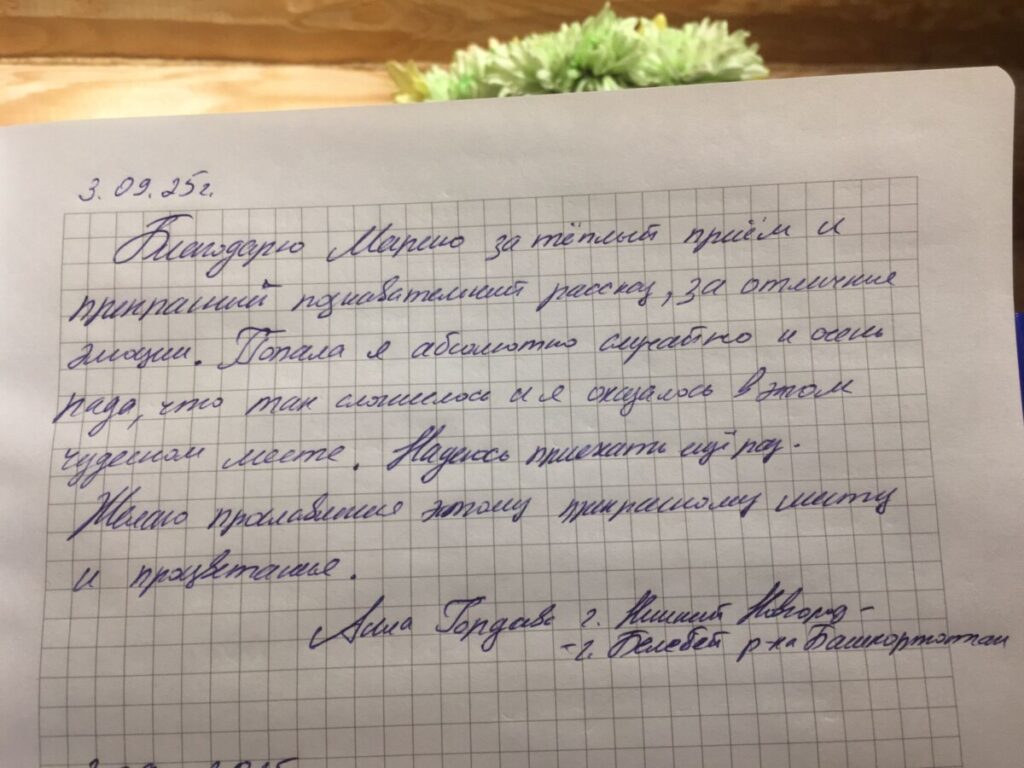 3.09.25г.
Благодарю Марию за тёплый приём и
прекрасный познавательный рассказ, за отличные
эмоции. Попала я абсолютно случайно и очень
рада, что так сложилось и я оказалось в этом
чудесном месте. Надеюсь приехать ещё раз.
Желаю прославления этому прекрасному месту
и процветания.
Алла г. Нижний Новгород -
- г. Белебей р-ка Башкортостан